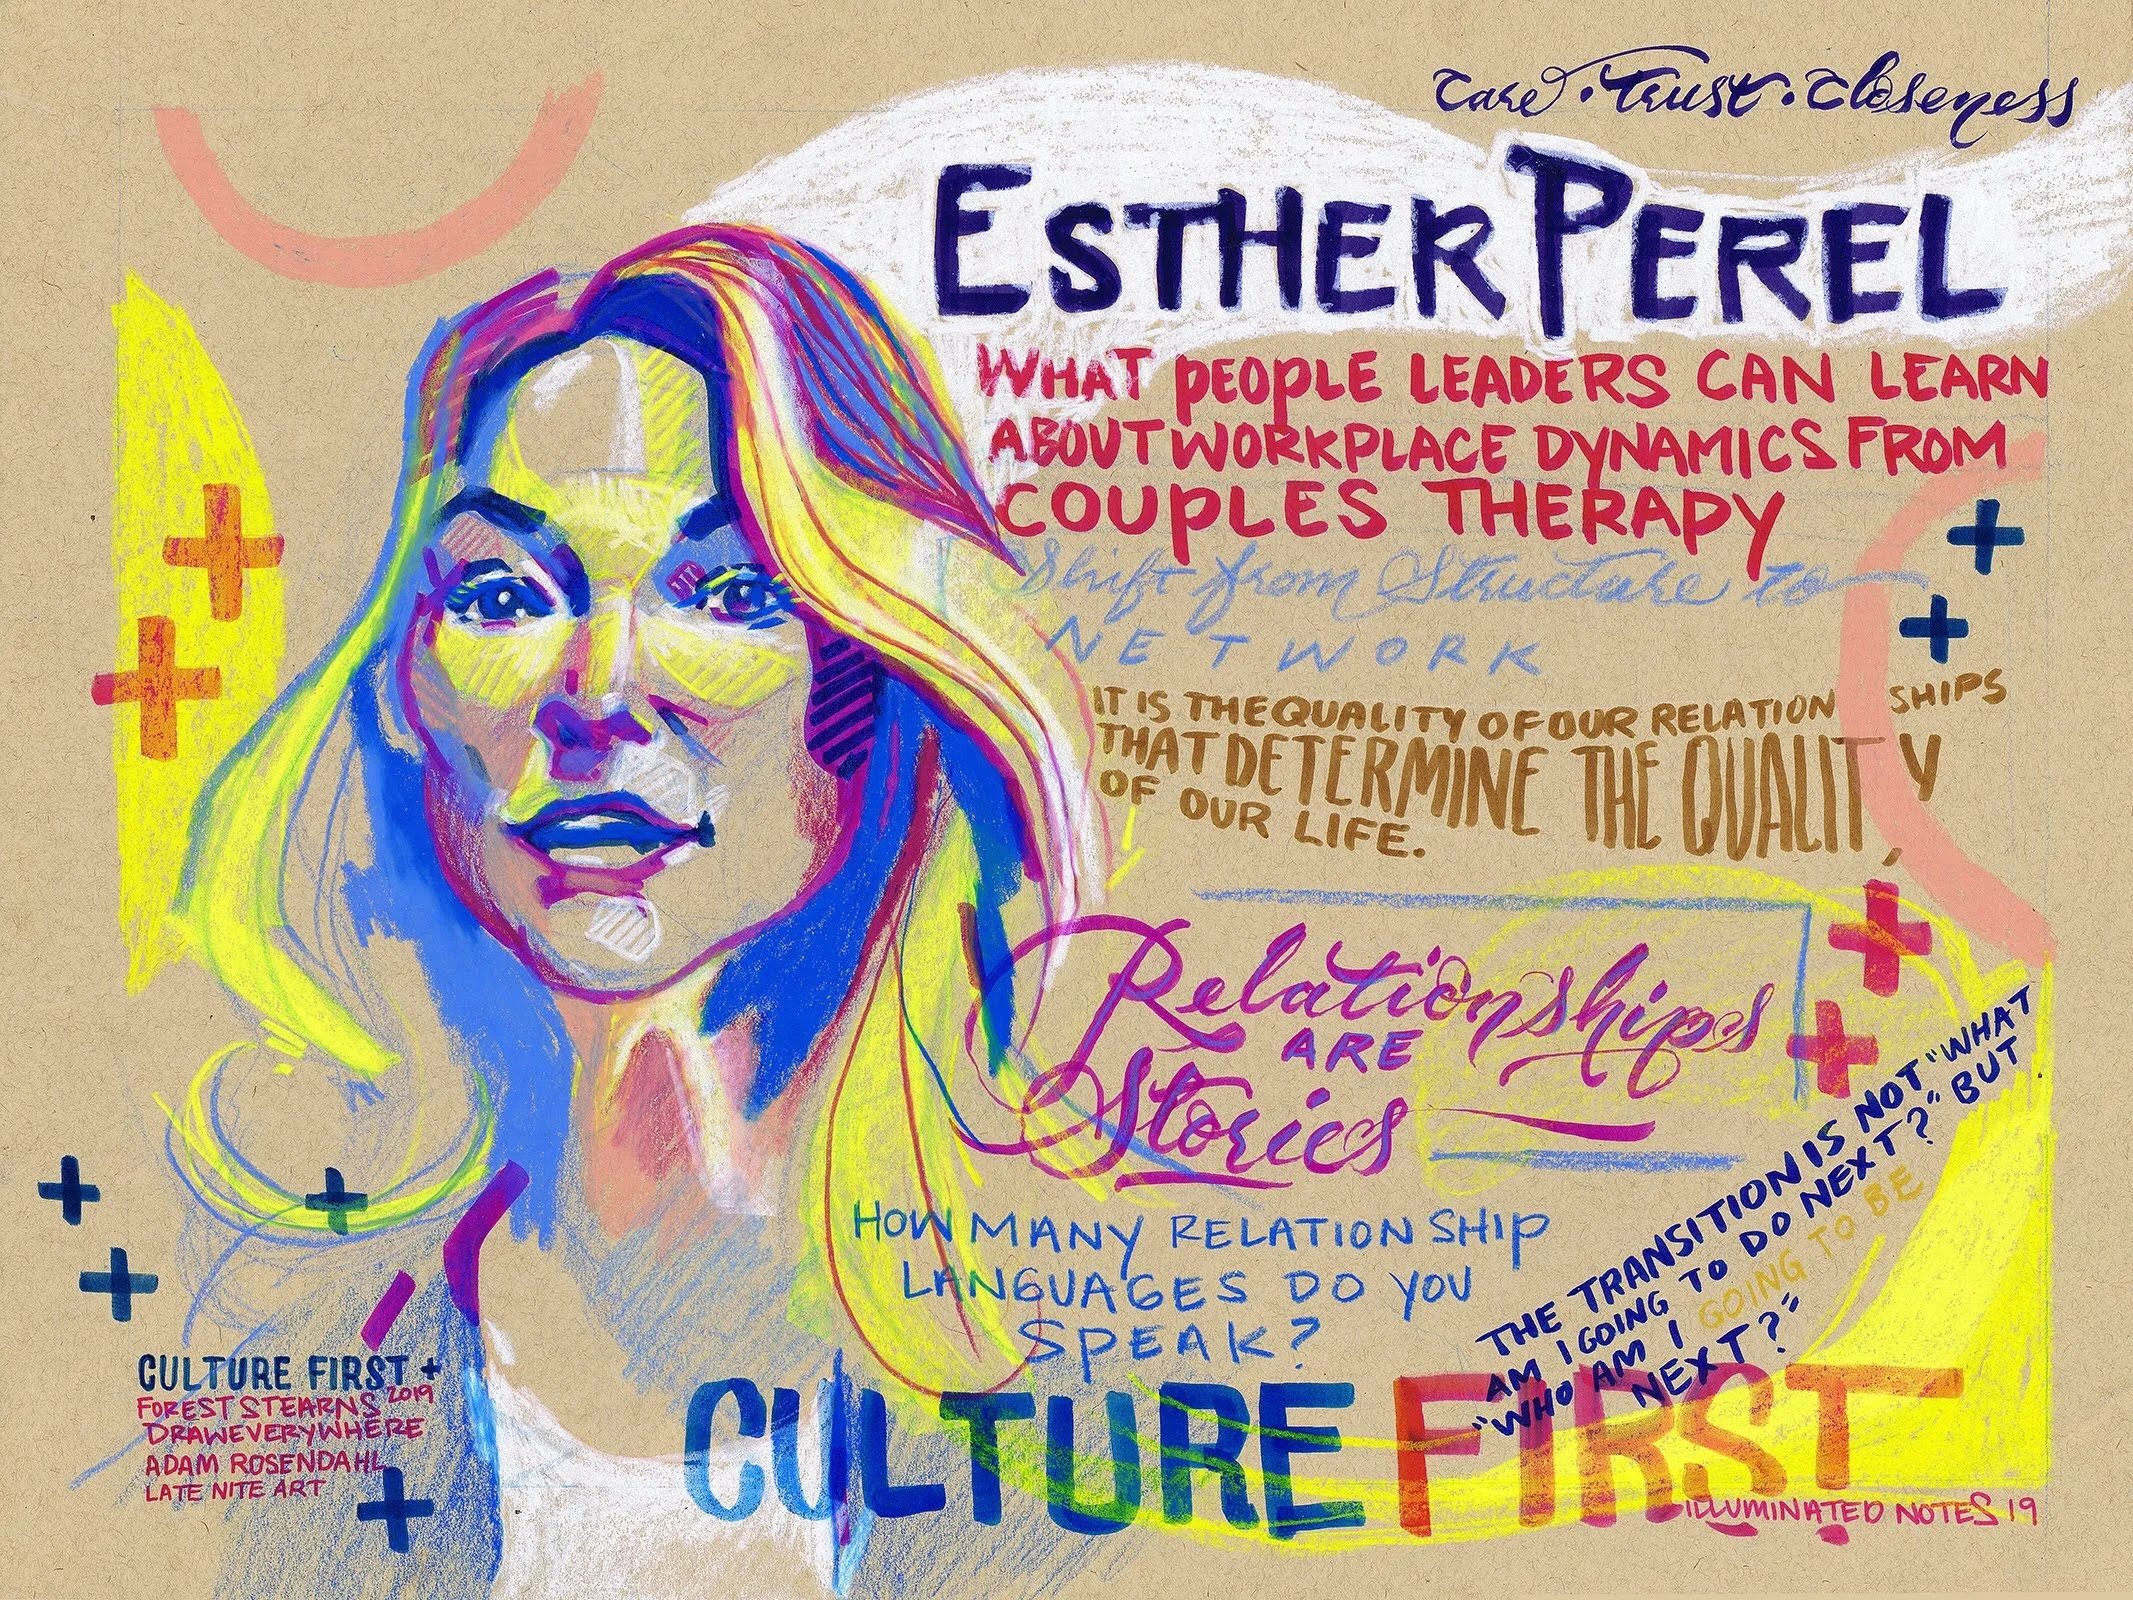 Care • Trust • Closeness
ESTHER PEREL
WHAT PEOPLE LEADERS CAN LEARN
ABOUT WORKPLACE DYNAMICS FROM
COUPLES THERAPY
Shift from Structure to
NETWORK
IT IS THE QUALITY OF OUR RELATIONSHIPS
THAT DETERMINE THE QUALITY
OF OUR LIFE.
Relationships
ARE
Stories
HOW MANY RELATIONSHIP
LANGUAGES DO YOU
SPEAK?
THE TRANSITION IS NOT "WHAT
AM I GOING TO DO NEXT?" BUT
"WHO AM I GOING TO BE
NEXT?"
CULTURE FIRST
CULTURE FIRST +
FOREST STEARNS 2019
DRAWEVERYWHERE
ADAM ROSENDAHL
LATE NITE ART
ILLUMINATED NOTES 19